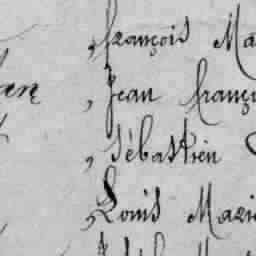 , françois Ma
, Jean franço
, sébastien
, Louis Marie